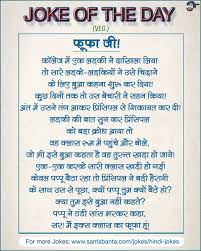 JOKE OF THE DAY
(VEG.)
फूफा जी!
कॉलेज में एक लड़की ने दाखिला लिया
तो सारे लड़के-लड़कियों ने उसे चिढ़ाने
के लिए बुआ कहना शुरू कर दिया!
कुछ दिनों तक तो उस बेचारी ने सहन किया!
अंत में उसने तंग आकर प्रिंसिपल से शिकायत कर दी!
लड़की की बात सुन कर प्रिंसिपल
को बड़ा क्रोध आया तो
वह क्लास रूम में पहुंचे और बोले,
जो भी इसे बुआ कहता है वह तुरन्त खड़ा हो जाये!
एक-एक करके सारी क्लास खड़ी हो गई!
केवल पप्पू बैठा रहा तो प्रिंसिपल ने बड़ी हैरानी
के साथ उस से पूछा, क्यों पप्पू तुम क्यों बैठे हो?
क्या तुम इसे बुआ नहीं कहते?
पप्पू ने ठंडी सांस भरकर कहा,
सर! में इक्का क्लास का फूफा हूं!
For more Jokes: www.santabanta.com/jokes/hindi-jokes